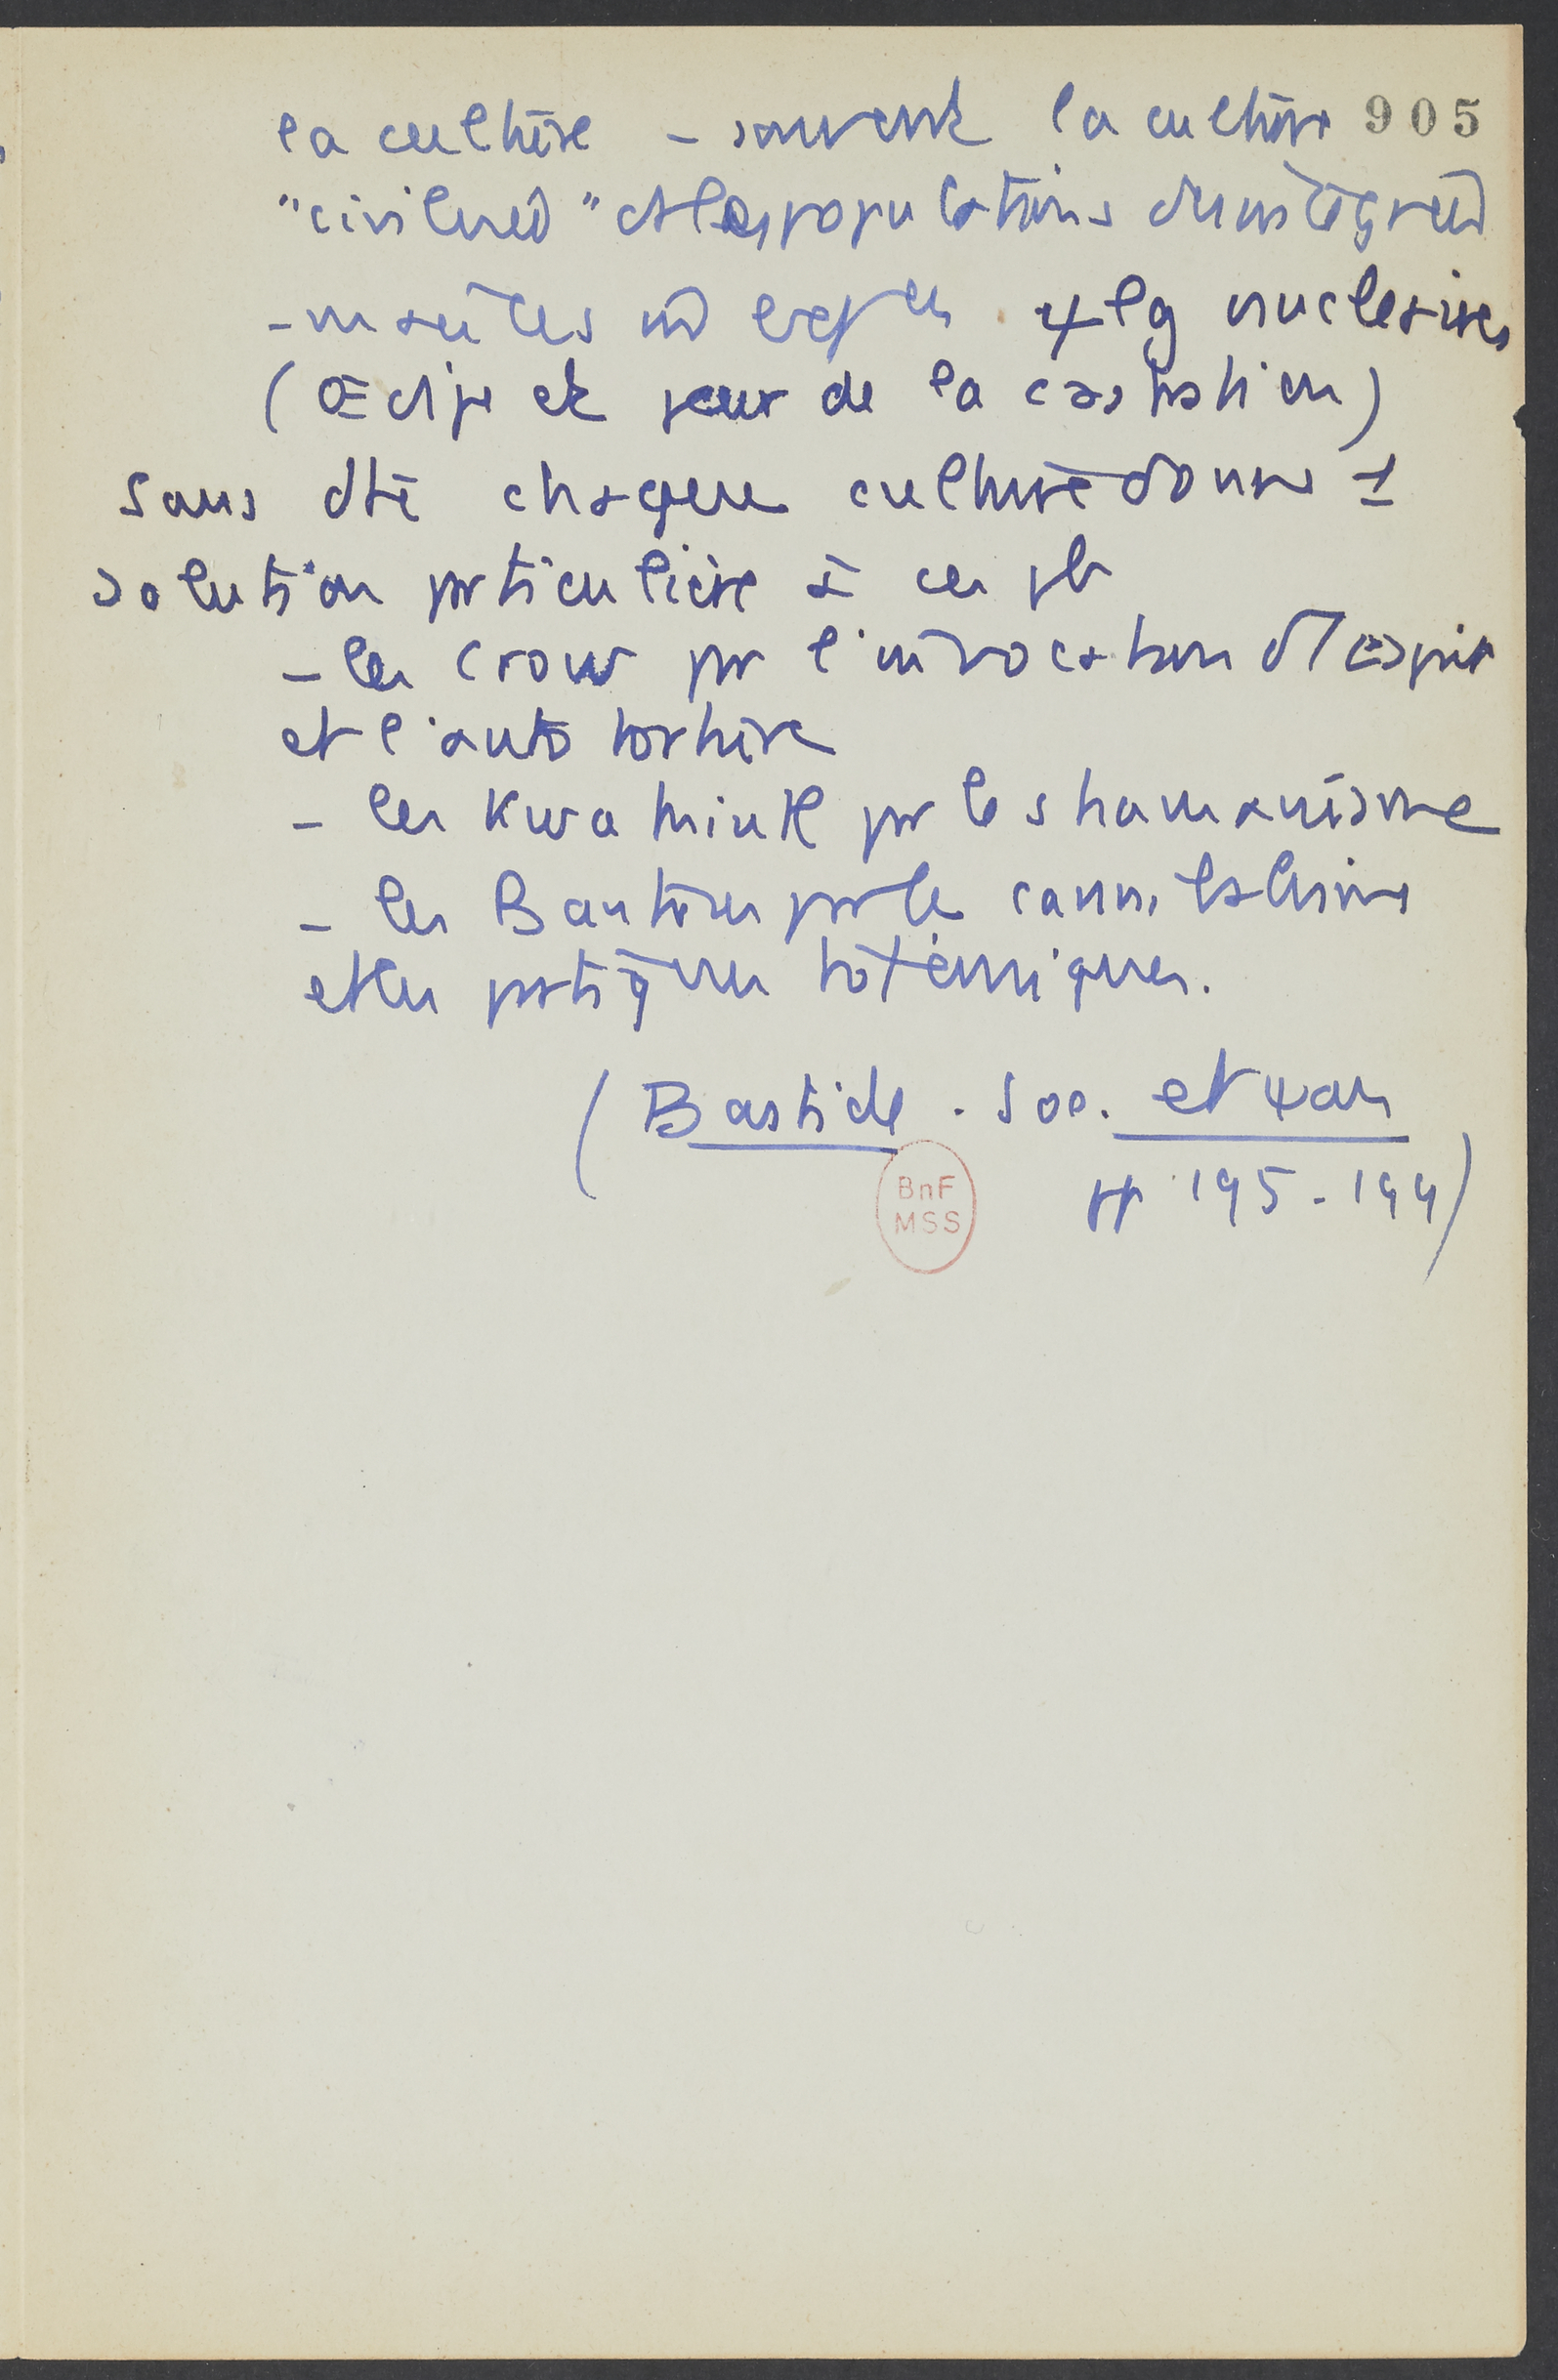 la culture – souvent la culture 905
"civilisée" et les populations désintégrées
- ensuite les complexes ψlg nucléaires
(Œdipe et peur de la castration)
Sans dte chaque culture donne 1
solution particulière à ces pb
- les Crow par l'invocation d'1 esprit
et l'auto torture
- les Kwakiutl par le shamanisme
- les Bantous par le cannibalisme
et les pratiques totémiques.
(Bastide. Soc. et ψan
pp 195-199)
BnF
MSS